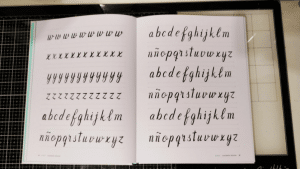 w w w w w w w w
x x x x x x x x x x x
y y y y y y y y y y y
z z z z z z z z z z z
a b c d e f g h i j k l m
n ñ o p q r s t u v w x y z
a b c d e f g h i j k l m
n ñ o p q r s t u v w x y z
a b c d e f g h i j k l m
n ñ o p q r s t u v w x y z
a b c d e f g h i j k l m
n ñ o p q r s t u v w x y z